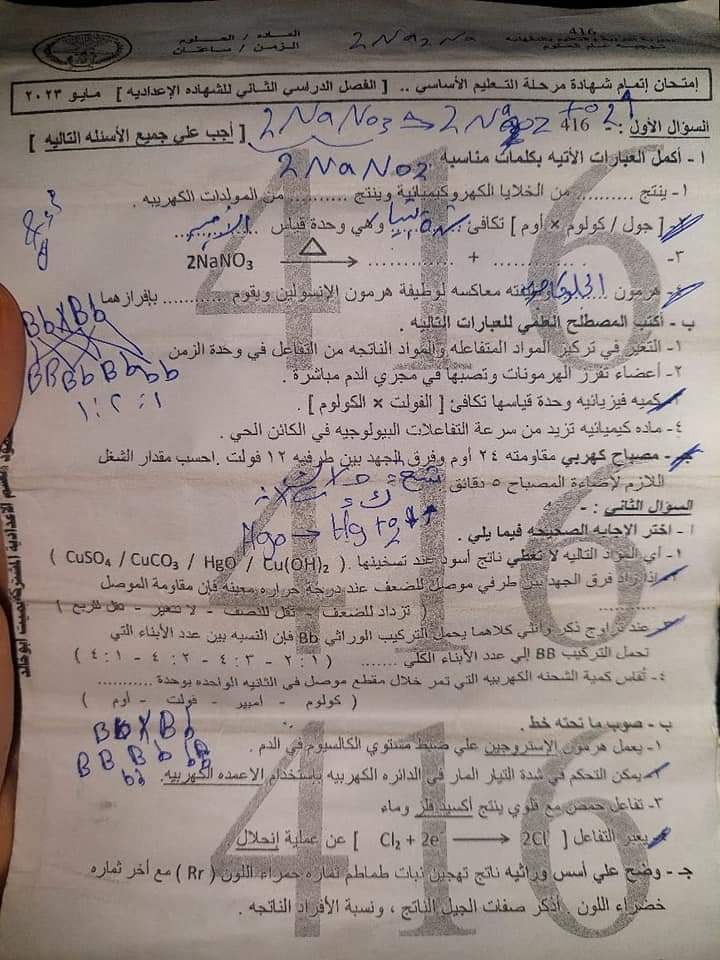 416
المادة / العلوم
الزمن / ساعتان
2 Na2 Na
إمتحان إتمام شهادة مرحلة التعليم الأساسي .. [ الفصل الدراسي الثاني للشهاده الإعداديه ] مايو ٢٠٢٣
2NaNo3
السؤال الأول : - 416 [ أجب علي جميع الأسئله التاليه ]
2NaNo2
١ - أكمل العبارات الأتيه بكلمات مناسبة
١ - ينتج .......... من الخلايا الكهروكيميائية وينتج .......... من المولدات الكهربيه .
٢- [ جول / كولوم × أوم ] تكافئ وهي وحدة قياس
٣- 2NaNO3 △ ⟶ ............. + .............. .
٤- هرمون وظيفته معاكسه لوظيفة هرمون الإنسولين ويقوم .......... بإفرازهما
Bb X Bb
ب - أكتب المصطلح العلمي للعبارات التاليه .
BB Bb Bb bb
١- التغير في تركيز المواد المتفاعله والمواد الناتجه من التفاعل في وحدة الزمن
١ : ٢ : ١
٢- أعضاء تفرز الهرمونات وتصبها في مجري الدم مباشرة .
٣- كميه فيزيائيه وحدة قياسها تكافئ [ الفولت × الكولوم ] .
٤- ماده كيميائيه تزيد من سرعة التفاعلات البيولوجيه في الكائن الحي .
جـ - مصباح كهربي مقاومته ٢٤ أوم وفرق الجهد بين طرفيه ١٢ فولت . احسب مقدار الشغل
اللازم لإضاءة المصباح ٥ دقائق
السؤال الثاني : -
Hgo → Hg + o2
١ - اختر الإجابه الصحيحه فيما يلي .
١- أي المواد التاليه لا تعطي ناتج أسود عند تسخينها . ( CuSO4 / CuCO3 / HgO / Cu(OH)2 )
٢- إذا زاد فرق الجهد بين طرفي موصل للضعف عند درجة حراره معينه فإن مقاومة الموصل
............ ( تزداد للضعف - تقل للنصف - لا تتغير - تقل للربع )
٣- عند تزاوج ذكر وأنثي كلاهما يحمل التركيب الوراثي Bb فإن النسبه بين عدد الأبناء التي
تحمل التركيب BB إلي عدد الأبناء الكلي ........ ( ١ : ٢ - ٣ : ٤ - ٢ : ٤ - ١ : ٤ )
٤- تُقاس كمية الشحنه الكهربيه التي تمر خلال مقطع موصل في الثانيه الواحده بوحدة ...........
( كولوم - أمبير - فولت - أوم )
ب - صوب ما تحته خط .
Bb X Bb
١- يعمل هرمون الإستروجين علي ضبط مستوي الكالسيوم في الدم .
٢- يمكن التحكم في شدة التيار المار في الدائره الكهربيه بإستخدام الاعمده الكهربيه .
٣- تفاعل حمض مع قلوي ينتج أكسيد فلز وماء
٤- يعبر التفاعل [ Cl2 + 2e ⟶ 2Cl ] عن عملية إنحلال
جـ - وضح علي أسس وراثيه ناتج تهجين نبات طماطم ثماره حمراء اللون ( Rr ) مع أخر ثماره
خضراء اللون . أذكر صفات الجيل الناتج ، ونسبة الأفراد الناتجه .